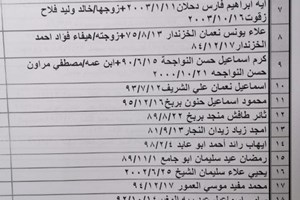 ٧ آيه ابراهيم فارس دحلان ٢٠٠٣/١/١١+زوجها/خالد وليد فلاح
زقوت ٢٠٠٣/١٠/١٦
٨ علاء يونس نعمان الخزندار ٧٥/٨/١٣+زوجته/هيفاء فؤاد احمد
الخزندار ٨٤/١٢/١٧
٩ كرم اسماعيل حسن النواجحة ٩٠/٦/١٥+ابن عمه/مصطفي مراون
حسن النواجحه ٢٠٠٠/١٠/٢١
١٠ اسماعيل نعمان علي الشريف ٩٣/٧/١٢
١١ محمود اسماعيل حنون بريخ ٩٥/١٢/١٦
١٢ ثائر طافش منجد بريخ ٨٩/٢/٢
١٣ امجد زياد زيدان النجار ٨١/٩/١٣
١٤ ايهاب رائد احمد ابو عابد ٩٨/٢/٤
١٥ رمضان عيد سليمان ابو جامع ٨٩/١١/١
١٦ يحيي علاء سليمان الشيخ ٢٠٠٢/٦/٢٥
١٧ محمد مفيد موسي العمور ٩٤/١٢/١٧